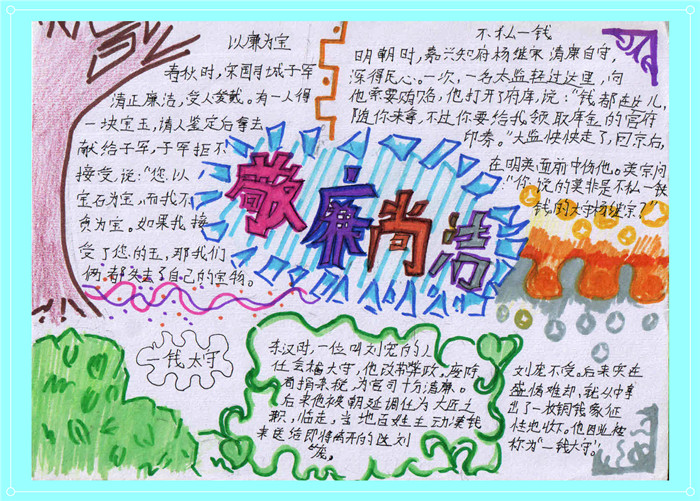 以廉为宝
春秋时,宋国司城子罕
清正廉洁,受人爱戴。有一人得
一块宝玉,请人鉴定后拿去
献给子罕,子罕拒不
接受,说:“您以
宝石为宝,而我不
贪为宝。如果我接
受了您的玉,那我们
俩都失去了自己的宝物。
敬廉尚洁
不私一钱
明朝时,嘉兴知府杨继宗清廉自守,
深得民心。一次,一名太监经过这里,向
他索要贿赂,他打开了府库,说:“钱都在这儿,
随你来拿,不过你要给我领取库金的官府
印券。”太监怏怏走了,回京后,
在明英面前中伤他。英宗问
:“你说的莫非是不私一铁
钱的太守杨继宗?”
一钱太守
东汉时,一位叫刘宠的人
任会稽太守,他改革弊政,废除
苛捐杂税,为官司十分清廉。
后来他被朝廷调任为大匠之
职,临走,当地百姓主动凑钱
来送给即将离开的
刘
宠,
刘宠不受。后来实在
盛情难却,就从中拿
出了一枚铜钱象征
性地收下。他因此被
称为“一钱太守”。